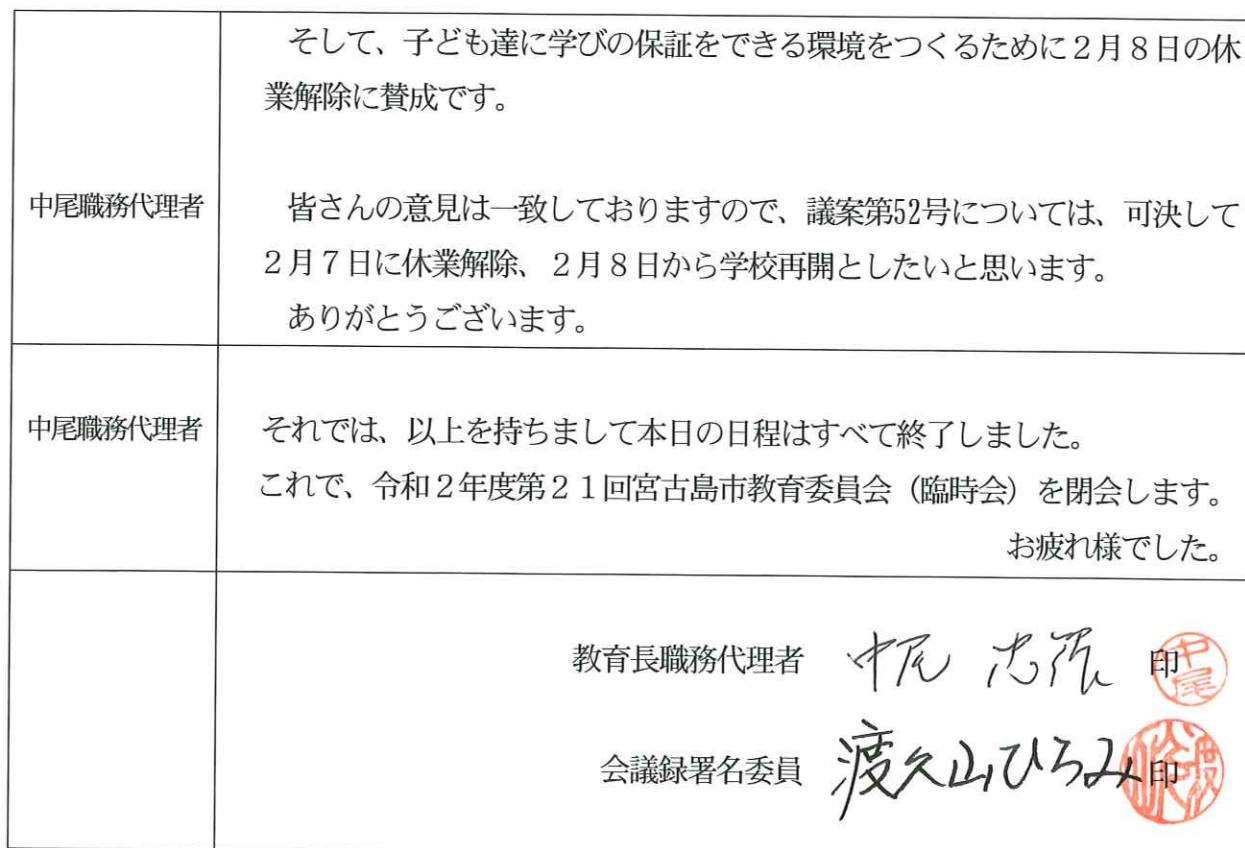 そして、子ども達に学びの保証をできる環境をつくるために２月８日の休
業解除に賛成です。
中尾職務代理者
皆さんの意見は一致しておりますので、議案第52号については、可決して
２月７日に休業解除、２月８日から学校再開としたいと思います。
ありがとうございます。
中尾職務代理者
それでは、以上を持ちまして本日の日程はすべて終了しました。
これで、令和２年度第２１回宮古島市教育委員会（臨時会）を閉会します。
お疲れ様でした。
教育長職務代理者 中尾 忠 印 中尾
会議録署名委員 渡久山ひろみ 印